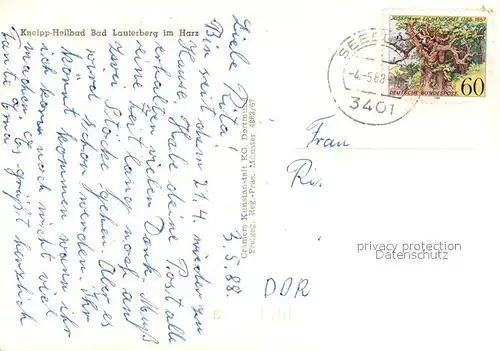 Kneipp-Heilbad Bad Lauterberg im Harz
3.5.88.
Liebe Rita!
Bin seit dem 21.4. wieder zu
Hause. Habe deine Post alle
erhalten vielen Dank. Muß
zwei Stöcke gehen. Aber es
wird schon werden. Ihr
könnt kommen wann ihr
ich kann noch nicht viel
machen. Es grüßt herzlich
Tante Erna
Cramers Kunstanstalt KG, Dortmund
Freigeg. Reg.-Präs. Münster 4883/61
JOSEPH VON EICHENDORFF 1788-1857
60
DEUTSCHE BUNDESPOST
-4.-5.88
3401
Frau
DDR
privacy protection
watermark